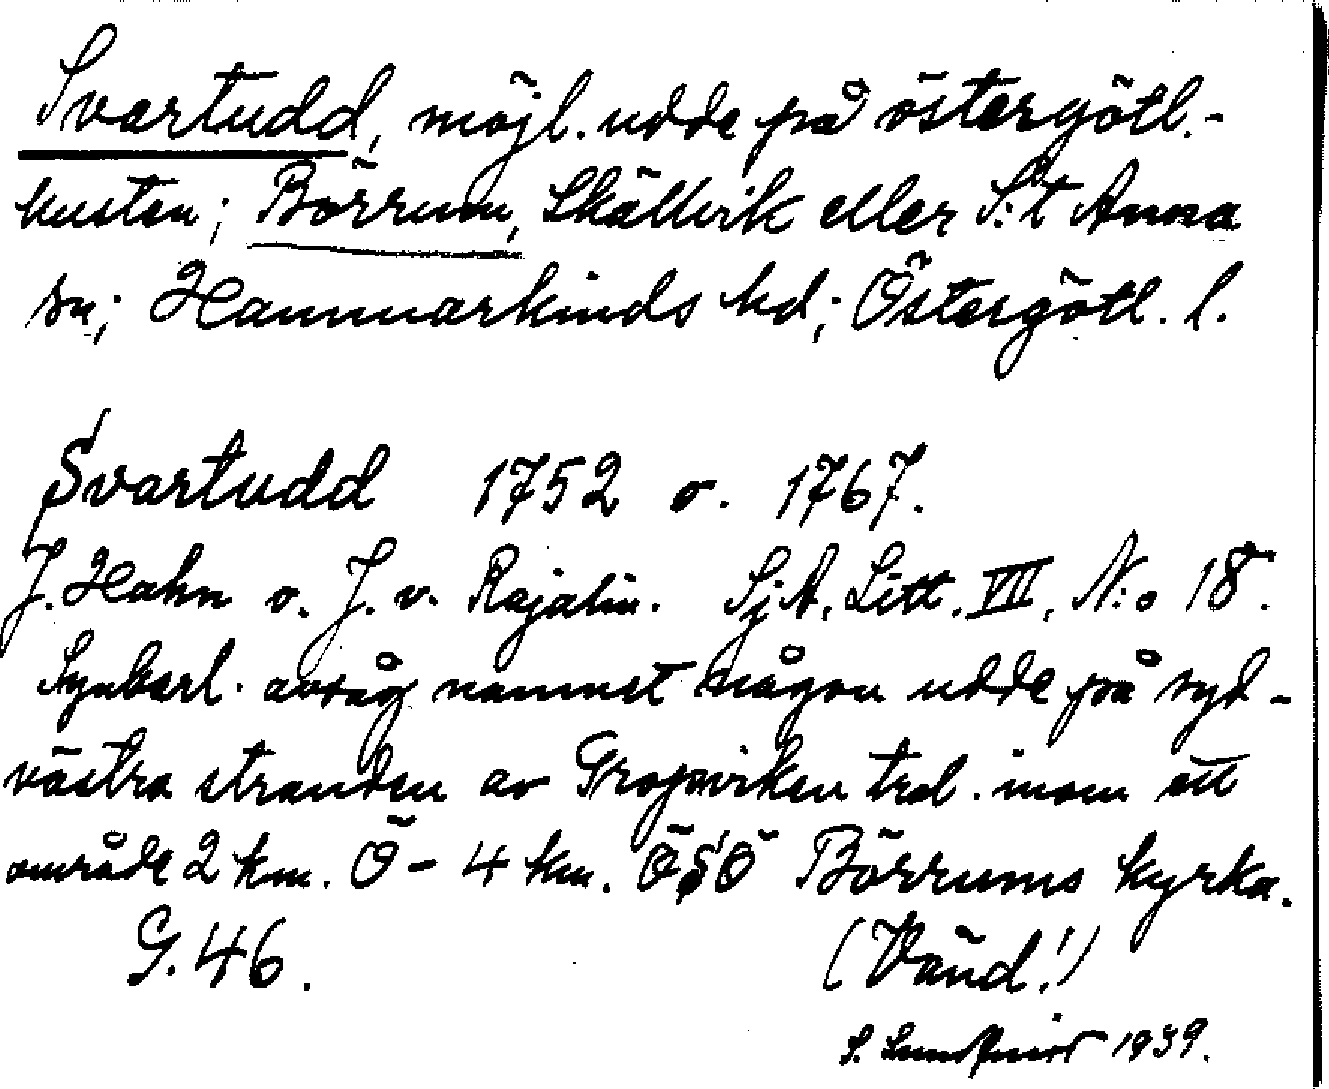 Svartudd, möjl. udde på östergötl.-
kusten; Börrum, Skällvik eller S:t Anna
sn; Hammarkinds hd; Östergötl. l.
Svartudd 1752 o. 1767.
J. Hahn o. J. v. Rajalin. SjA, Litt. VII, N:o 18.
Synbarl. avsåg namnet någon udde på syd-
västra stranden av Gropviken trol. inom ett
område 2 km. Ö - 4 km. ÖSÖ Börrums kyrka.
G. 46. (Vänd!)
S. Lundqvist 1939.